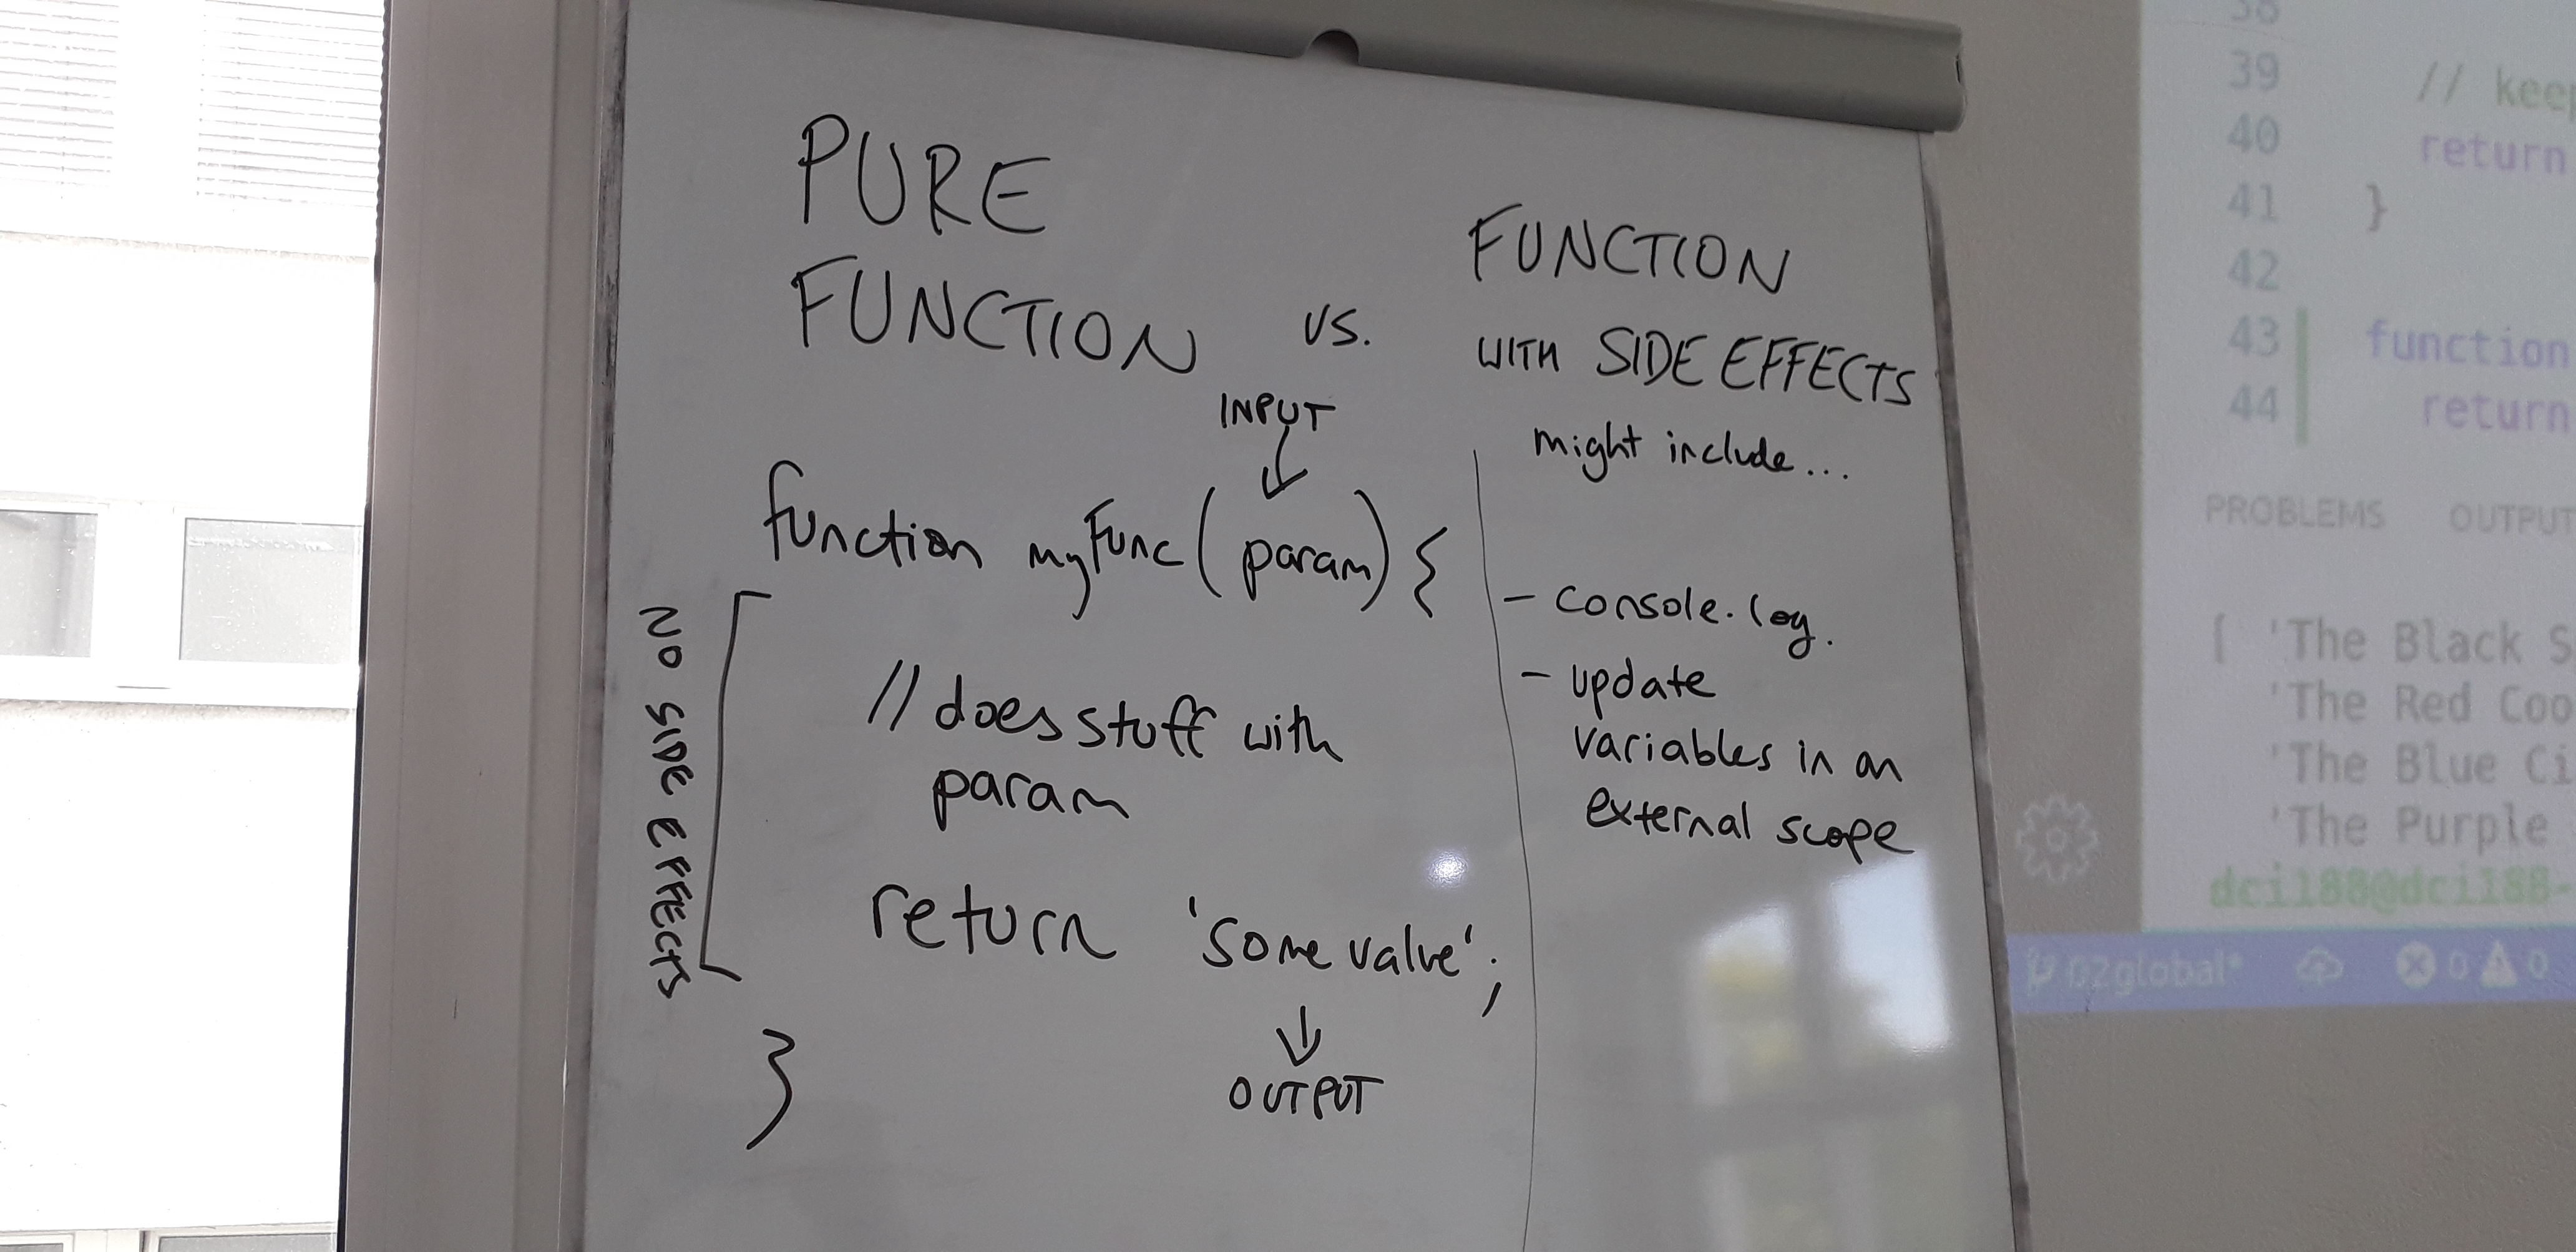 PURE
FUNCTION
vs.
FUNCTION
WITH SIDE EFFECTS
might include...
INPUT
function myFunc(param) {
NO SIDE EFFECTS
// does stuff with
param
return 'some value';
OUTPUT
}
- console.log.
- update
variables in an
external scope
38
39 // keep
40 return
41 }
42
43 function
44 return
PROBLEMS OUTPUT
[ 'The Black S
'The Red Coo
'The Blue Ci
'The Purple
dci188@dci188-
02global* 0 0